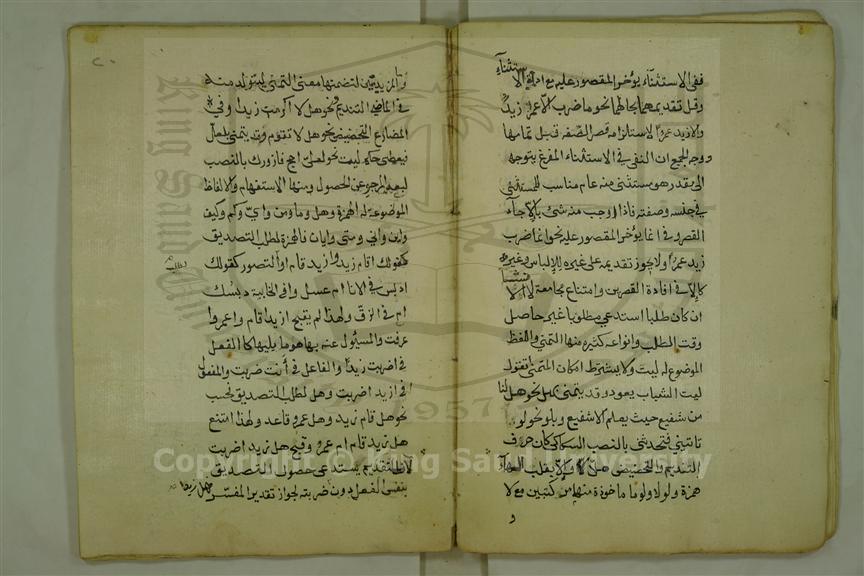 ففي الاستثناء يؤخر المقصور عليه مع اداة الاستثناء
وقل تقديمهما بحالهما نحو ما ضرب الا عمرا زيد
والا زيد عمرا لاستلزامه قصر الصفة قبل تمامها
ووجه الجميع ان النفي في الاستثناء المفرغ يتوجه
الى مقدر هو مستثنى منه عام مناسب للمستثنى
في جنسه وصفته فاذا اوجب منه شئ بالا جاء
القصر وفي انما يؤخر المقصور عليه نحو انما ضرب
زيد عمرا ولا يجوز تقديمه على غيره للالباس وغير
كالا في افادة القصرين وامتناع مجامعة لا الانشا
ان كان طلبا استدعى مطلوبا غير حاصل
وقت الطلب وانواعه كثيرة منها التمني واللفظ
الموضوع له ليت ولا يشترط امكان المتمنى تقول
ليت الشباب يعود وقد يتمنى بهل نحو هل لنا
من شفيع حيث يعلم الا شفيع وبلو نحو لو
تاتيني فتحدثني بالنصب السكاكي كان حروف
التنديم والتحضيض هلا والا بقلب الهاء
همزة ولولا ولوما ماخوذة منهما مركبتين مع لا
و
٢٠
وما المزيدتين لتضمنهما معنى التمني ليتولد منه
في الماضي التنديم نحو هلا اكرمت زيدا وفي
المضارع التحضيض نحو هلا تقوم وقد يتمنى بلعل
فيعطى حكم ليت نحو لعلي احج فازورك بالنصب
لبعد المرجو عن الحصول ومنها الاستفهام والالفاظ
الموضوعة له الهمزة وهل وما ومن واي وكم وكيف
واين وانى ومتى وايان فالهمزة لطلب التصديق
كقولك اقام زيد وازيد قام او التصور كقولك
ادبس في الاناء ام عسل وافي الخابية دبسك
ام في الزق ولهذا لم يقبح ازيد قام واعمروا
عرفت والمسئول عنه بها هو ما يليها كالفعل
في اضربت زيدا والفاعل في أانت ضربت والمفعول
في ازيدا ضربت وهل لطلب التصديق فحسب
نحو هل قام زيد وهل عمرو قاعد ولهذا امتنع
هل زيد قام ام عمرو وقبح هل زيدا ضربت
لان التقديم يستدعى حصول التصديق
بنفس الفعل دون هل زيدا ضربته لجواز تقدير المفسر
Copyright © King Saud University
King Saud University
1957